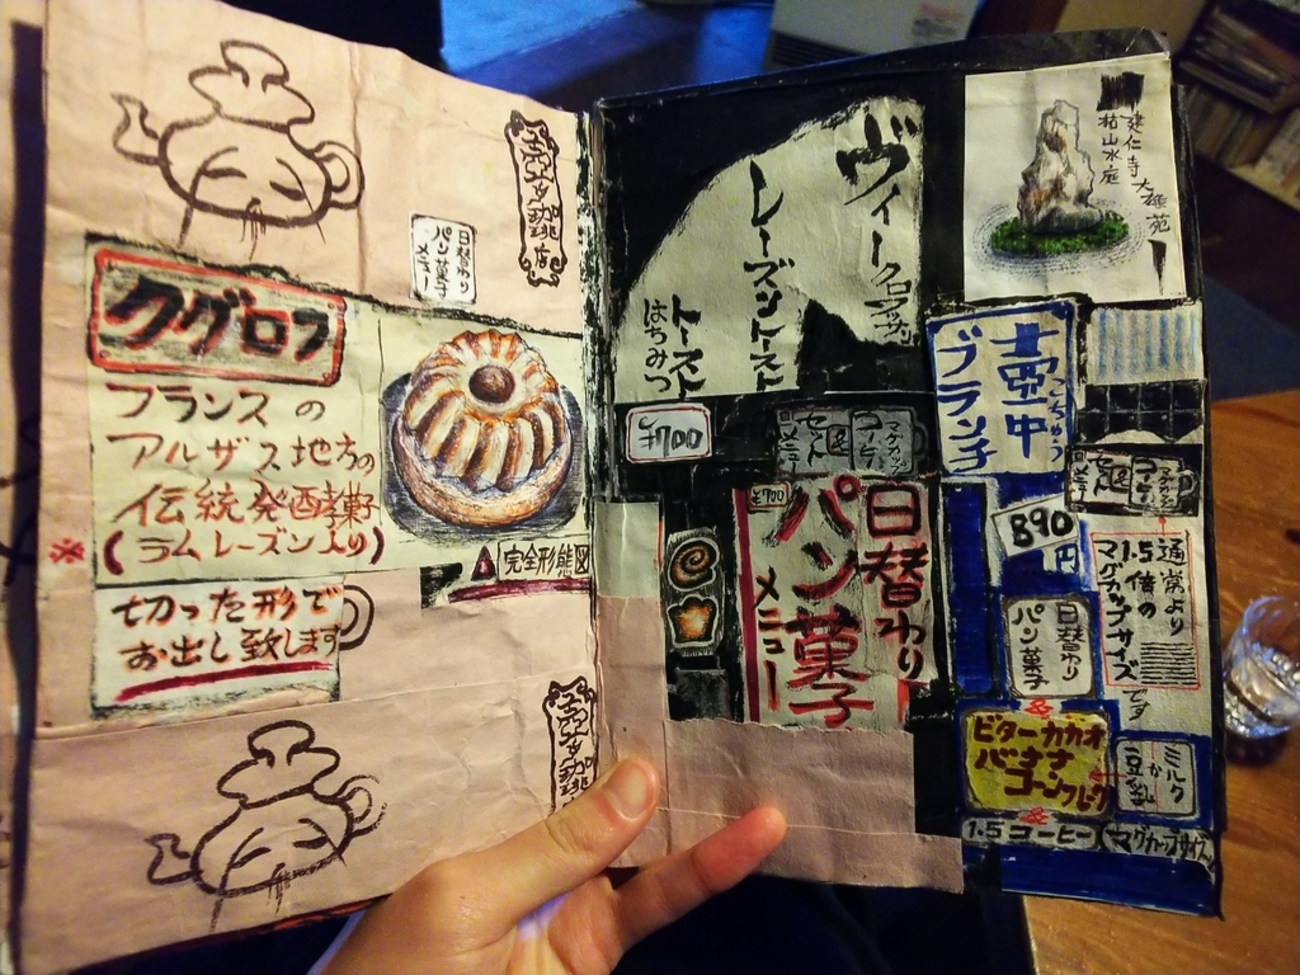 珈琲店
日替わり
パン菓子
メニュー
クグロフ
フランスの
アルザス地方の
伝統発酵菓子
※(ラムレーズン入り)
完全形態図
切った形で
お出し致します
珈琲
ヴィークロワッサン
レーズントースト
トースト
はちみつ
¥700
マグカップ
コーヒー
&
セット
メニュー
¥700
日替わり
パン菓子
メニュー
建仁寺
枯山水庭
大雄苑
壷中
こちゅう
ブランチ
マグカップ
コーヒー
&
セット
メニュー
890円
通常より
1.5倍の
マグカップサイズ
です
日替わり
パン菓子
&
ビターカカオ
バナナ
コーンフレーク
ミルク
か
豆乳
&
1.5コーヒー(マグカップサイズ)